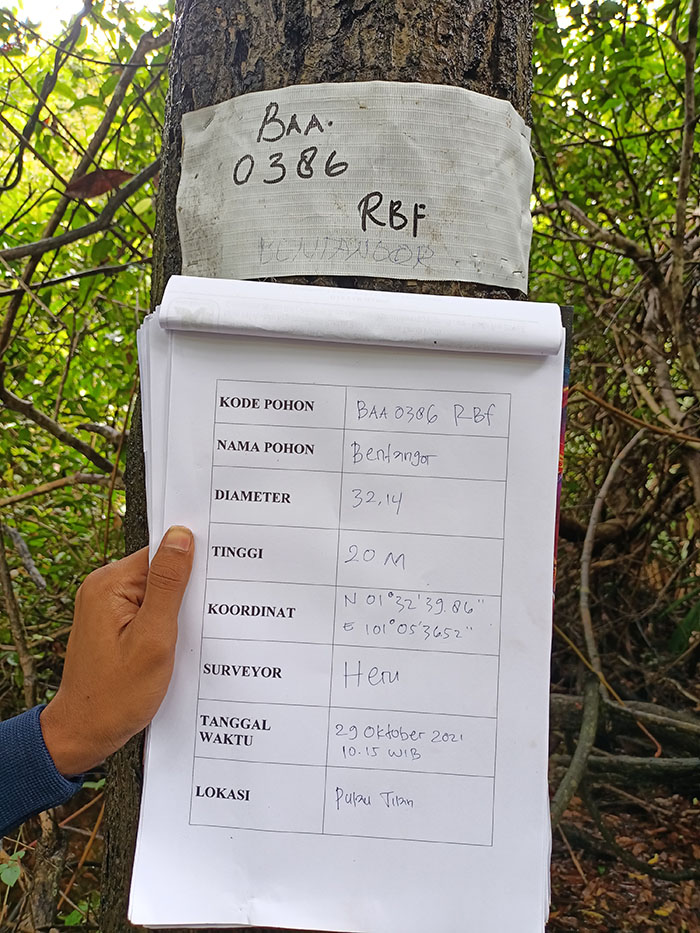 BAA.
0386
RBF
BENTANGOR
KODE POHON BAA 0386 RBf
NAMA POHON Bentangor
DIAMETER 32,14
TINGGI 20 M
KOORDINAT N 01°32'39.86"
E 101°05'3652"
SURVEYOR Heru
TANGGAL WAKTU 29 Oktober 2021
10.15 WIB
LOKASI Pulau Tilan